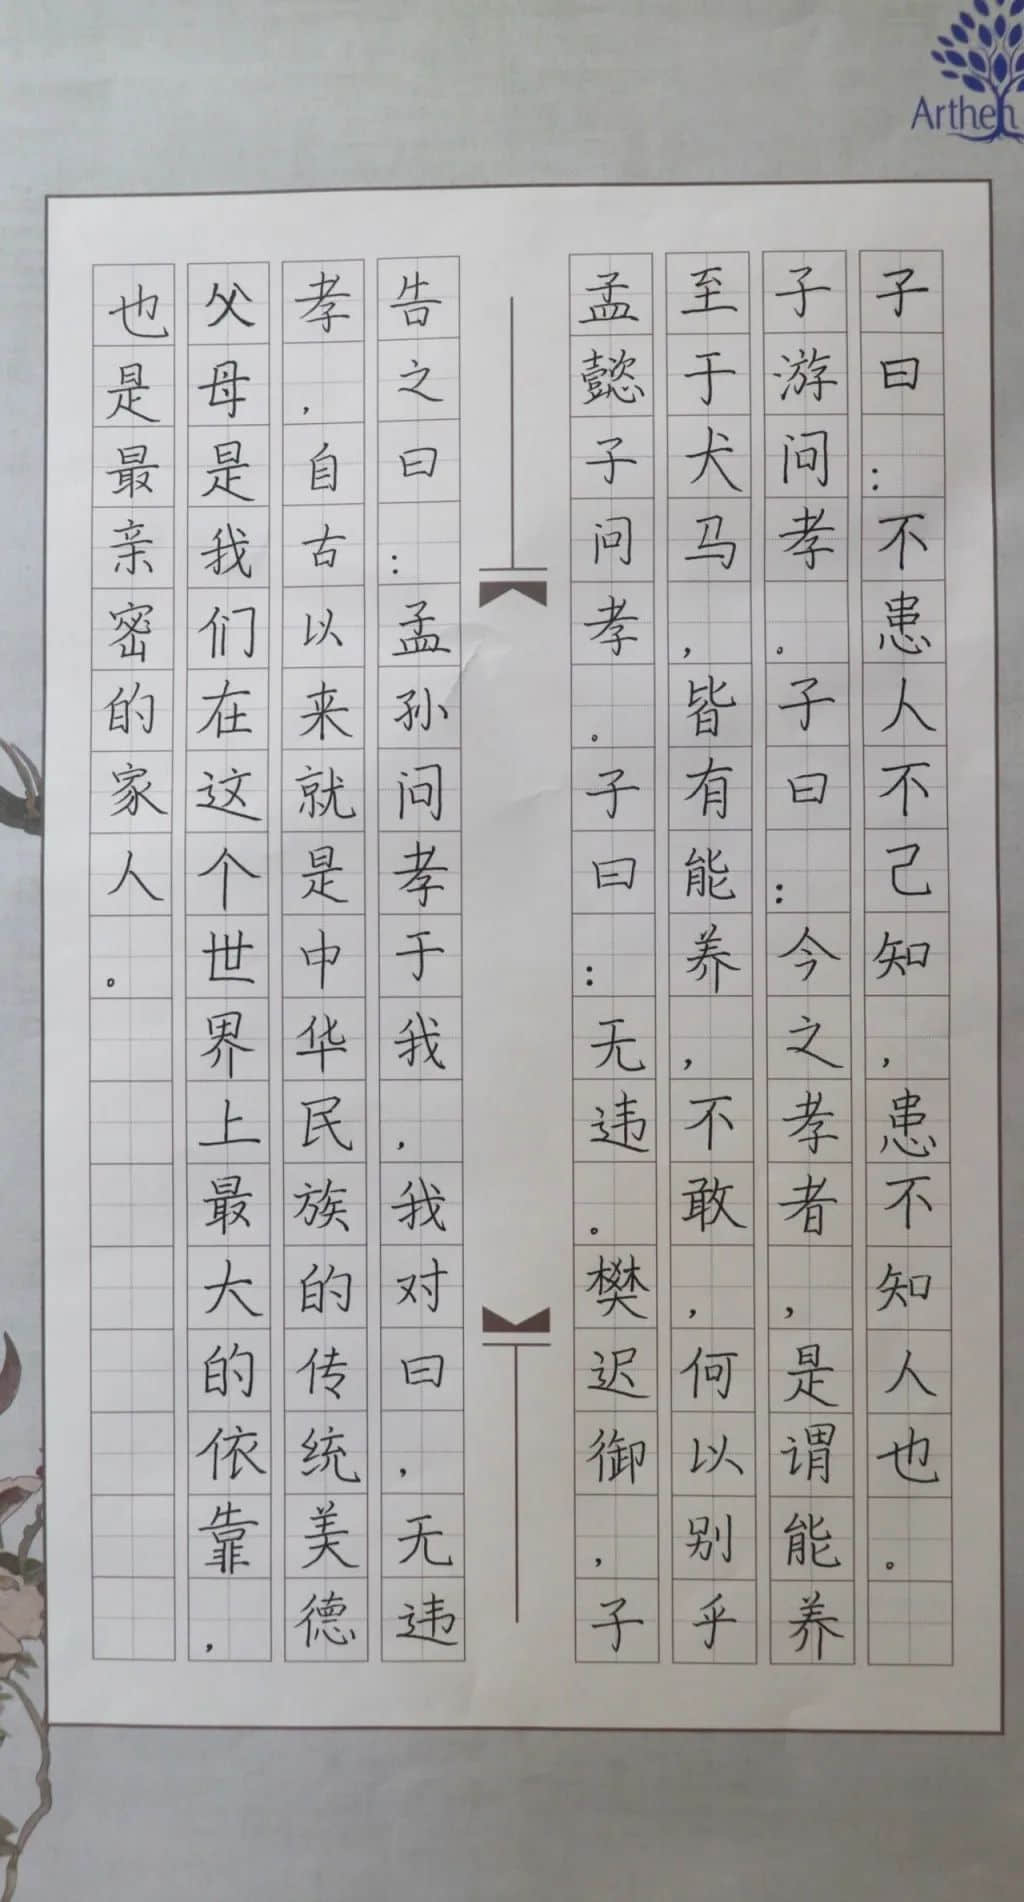 Arthen
子曰：不患人不己知，患不知人也。
子游问孝。子曰：今之孝者，是谓能养
至于犬马，皆有能养，不敢，何以别乎
孟懿子问孝。子曰：无违。樊迟御，子
告之曰：孟孙问孝于我，我对曰，无违
孝，自古以来就是中华民族的传统美德
父母是我们在这个世界上最大的依靠，
也是最亲密的家人。